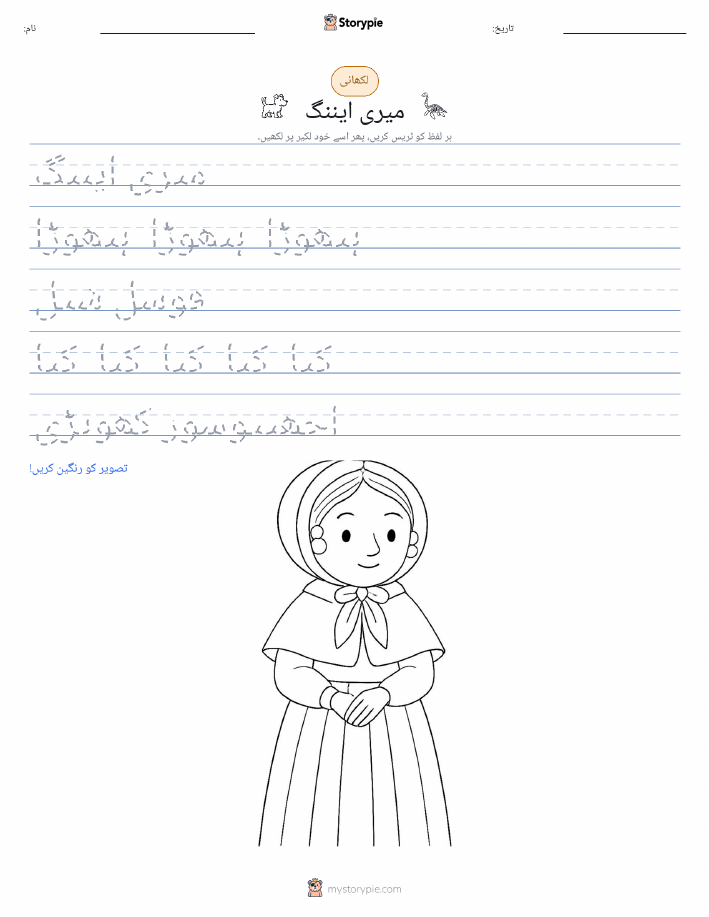 نام:
Storypie
تاریخ:
لکھائی
میری ایننگ
ہر لفظ کو ٹریس کریں، پھر اسے خود لکیر پر لکھیں۔
میری ایننگ
ہتھوڑا ہتھوڑا ہتھوڑا
فوسل نسل
کتا کتا کتا کتا کتا
اچھیوسور کھوپڑی
تصویر کو رنگین کریں!
mystorypie.com